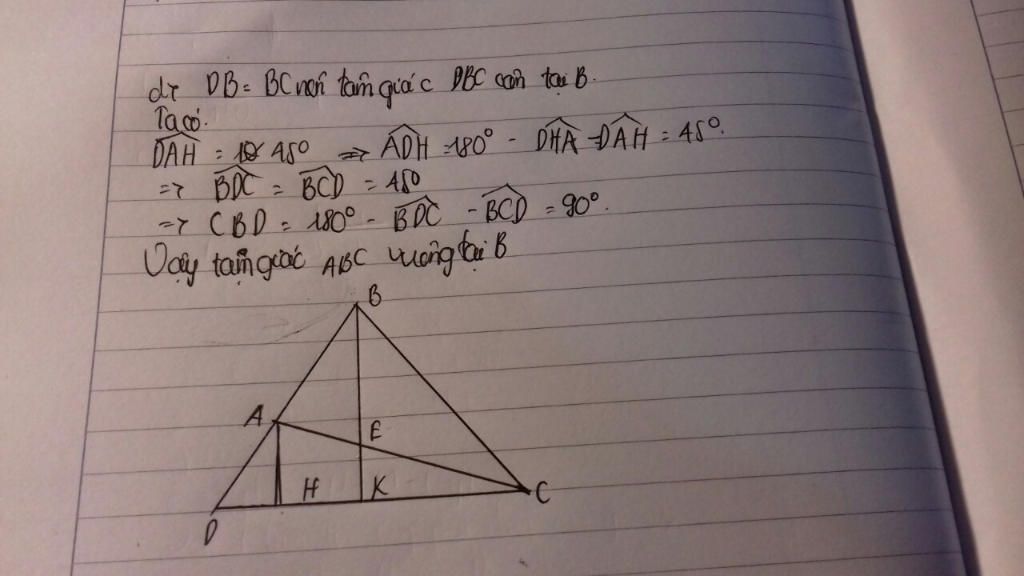 d, DB = BC nên tam giác DBC cân tại B.
Ta có.
DAH = 45° => ADH = 180° - DHA - DAH = 45°.
=> BDC = BCD = 450
=> CBD = 180° - BDC - BCD = 90°.
Vậy tam giác ABC vuông tại B
B
A
E
H
K
C
D